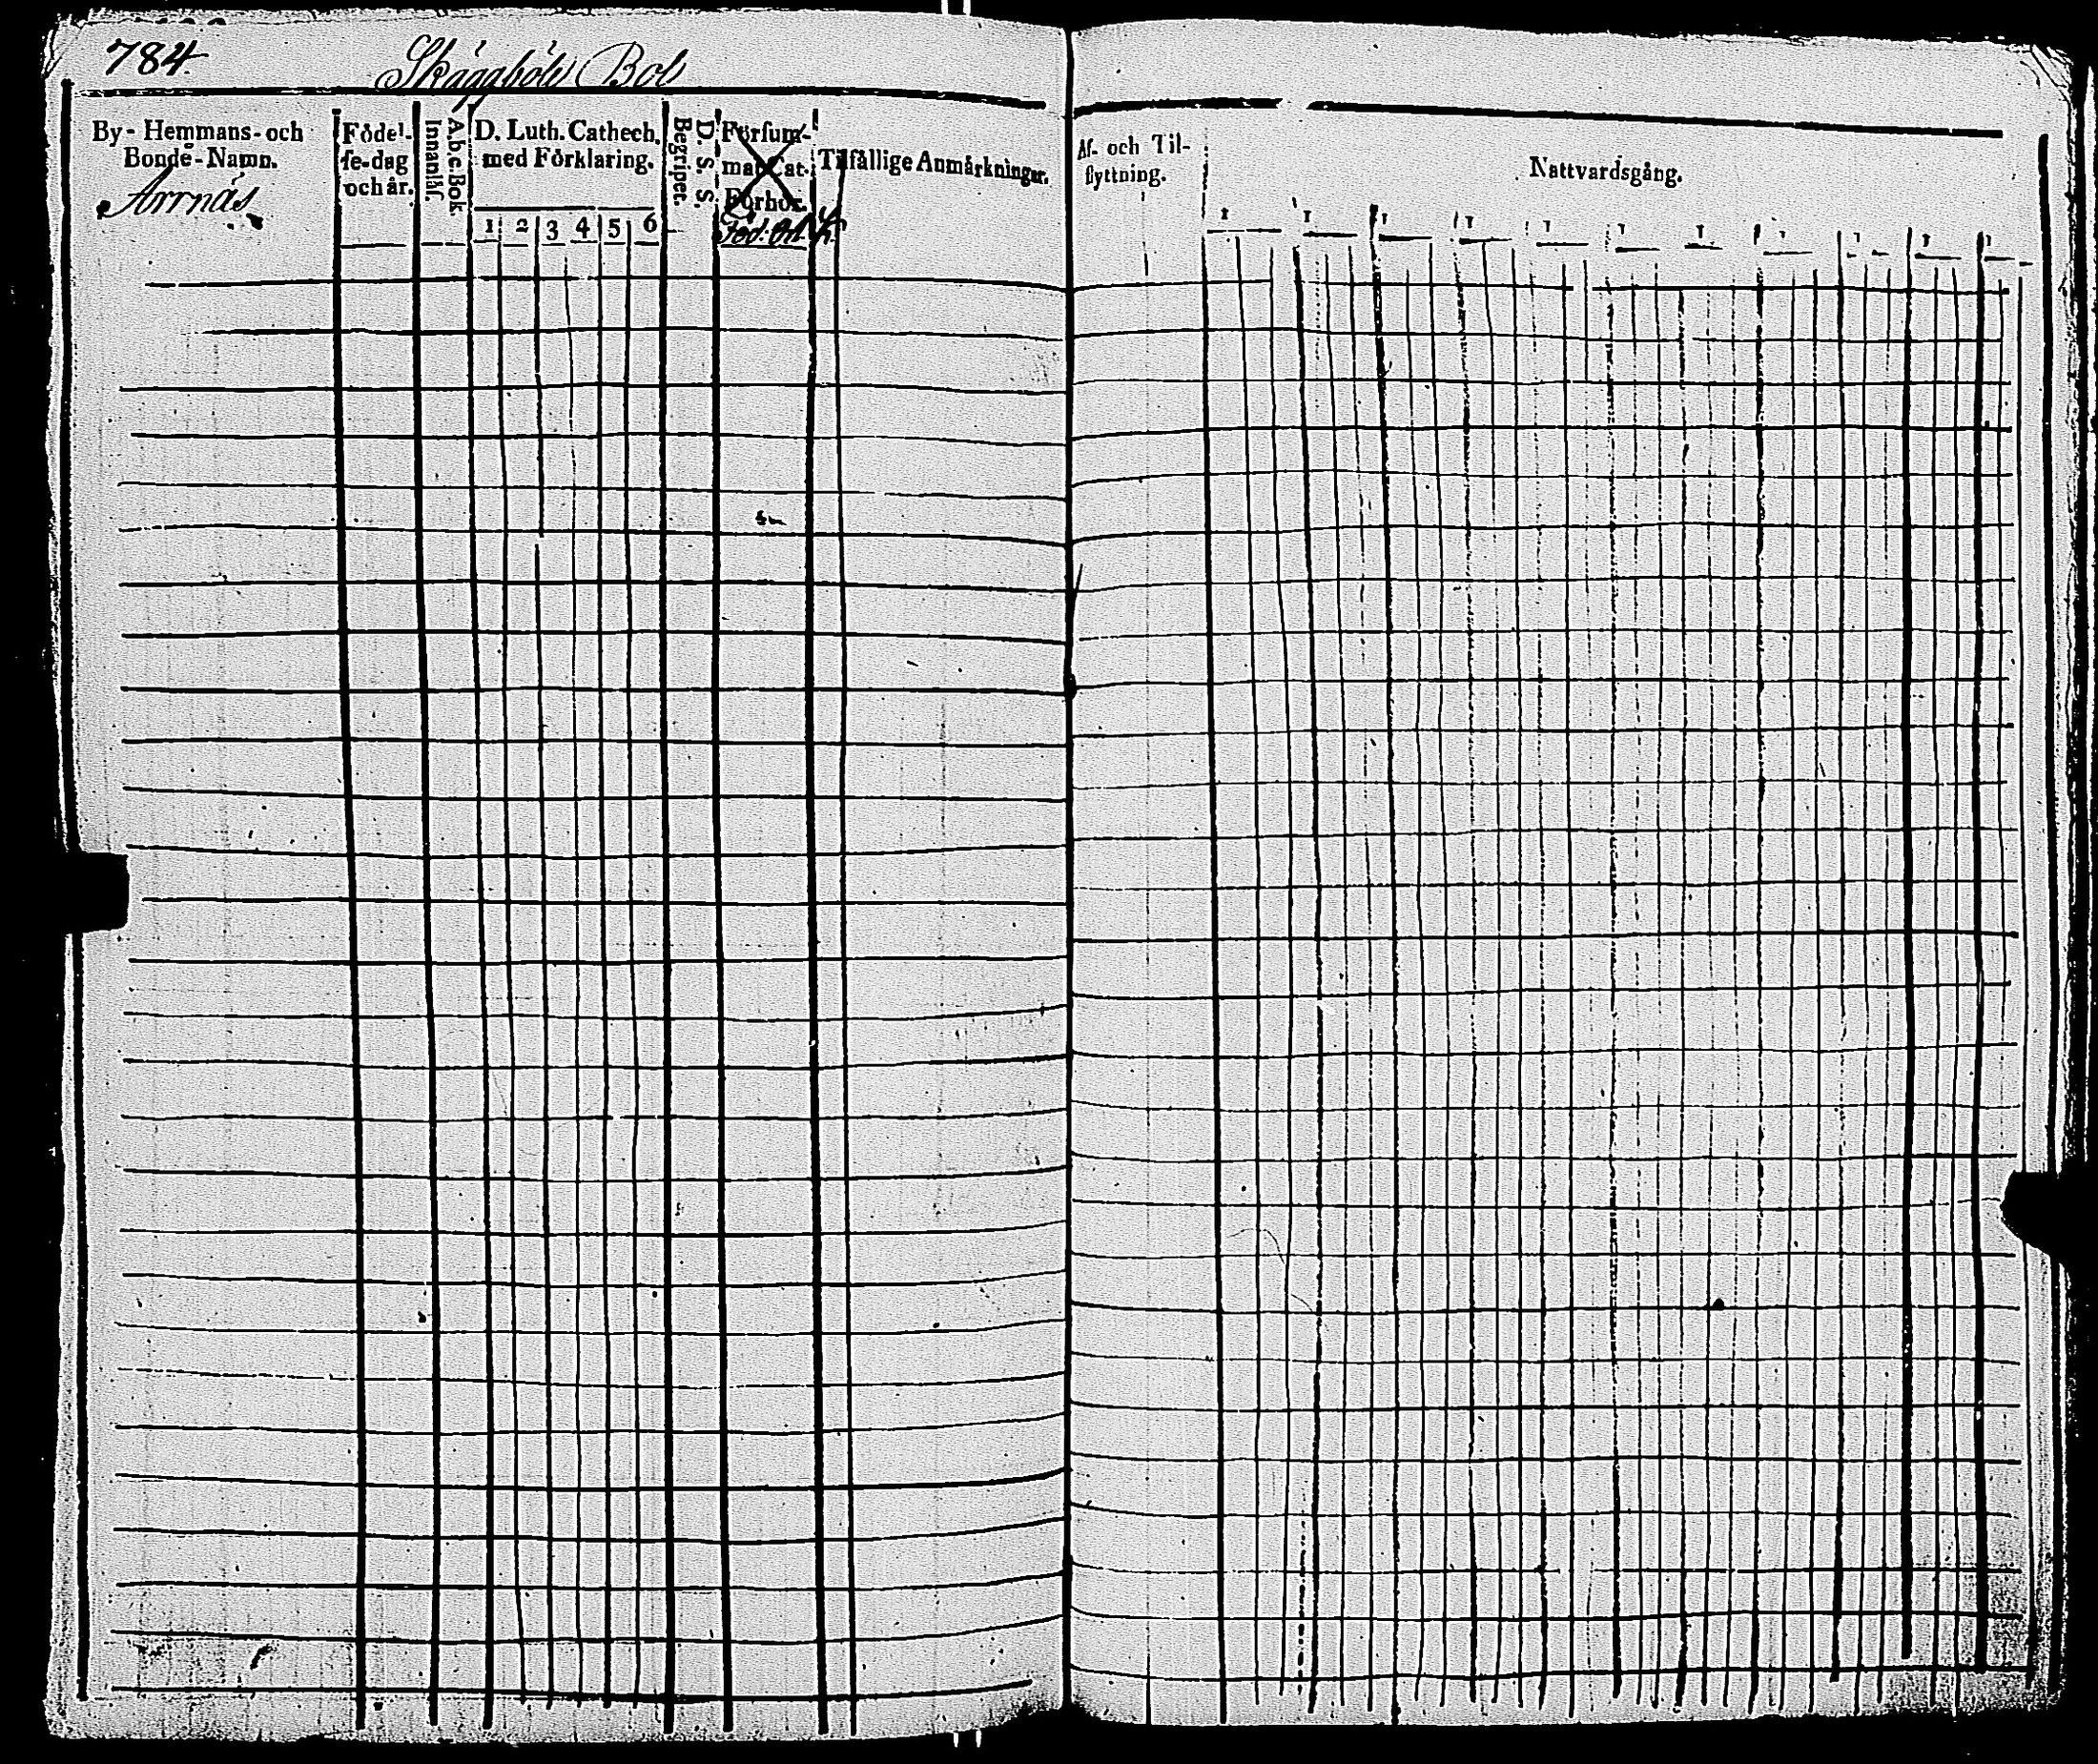 784.
Skäggböle Bol
By- Hemmans- och
Bonde-Namn.
Arrnäs
Födel-
se-dag
och år.
A.b.c.Bok.
Innanläs.
D. Luth. Cathech.
med Förklaring.
1 2 3 4 5 6
D. S. S.
Begriper.
Försum-
mat Cat.
Förhör.
Föd. Ort.
Tilfällige Anmärkningar.
Af- och Til-
flyttning.
Nattvardsgång.
1 1 1 1 1 1 1 1 1 1 1